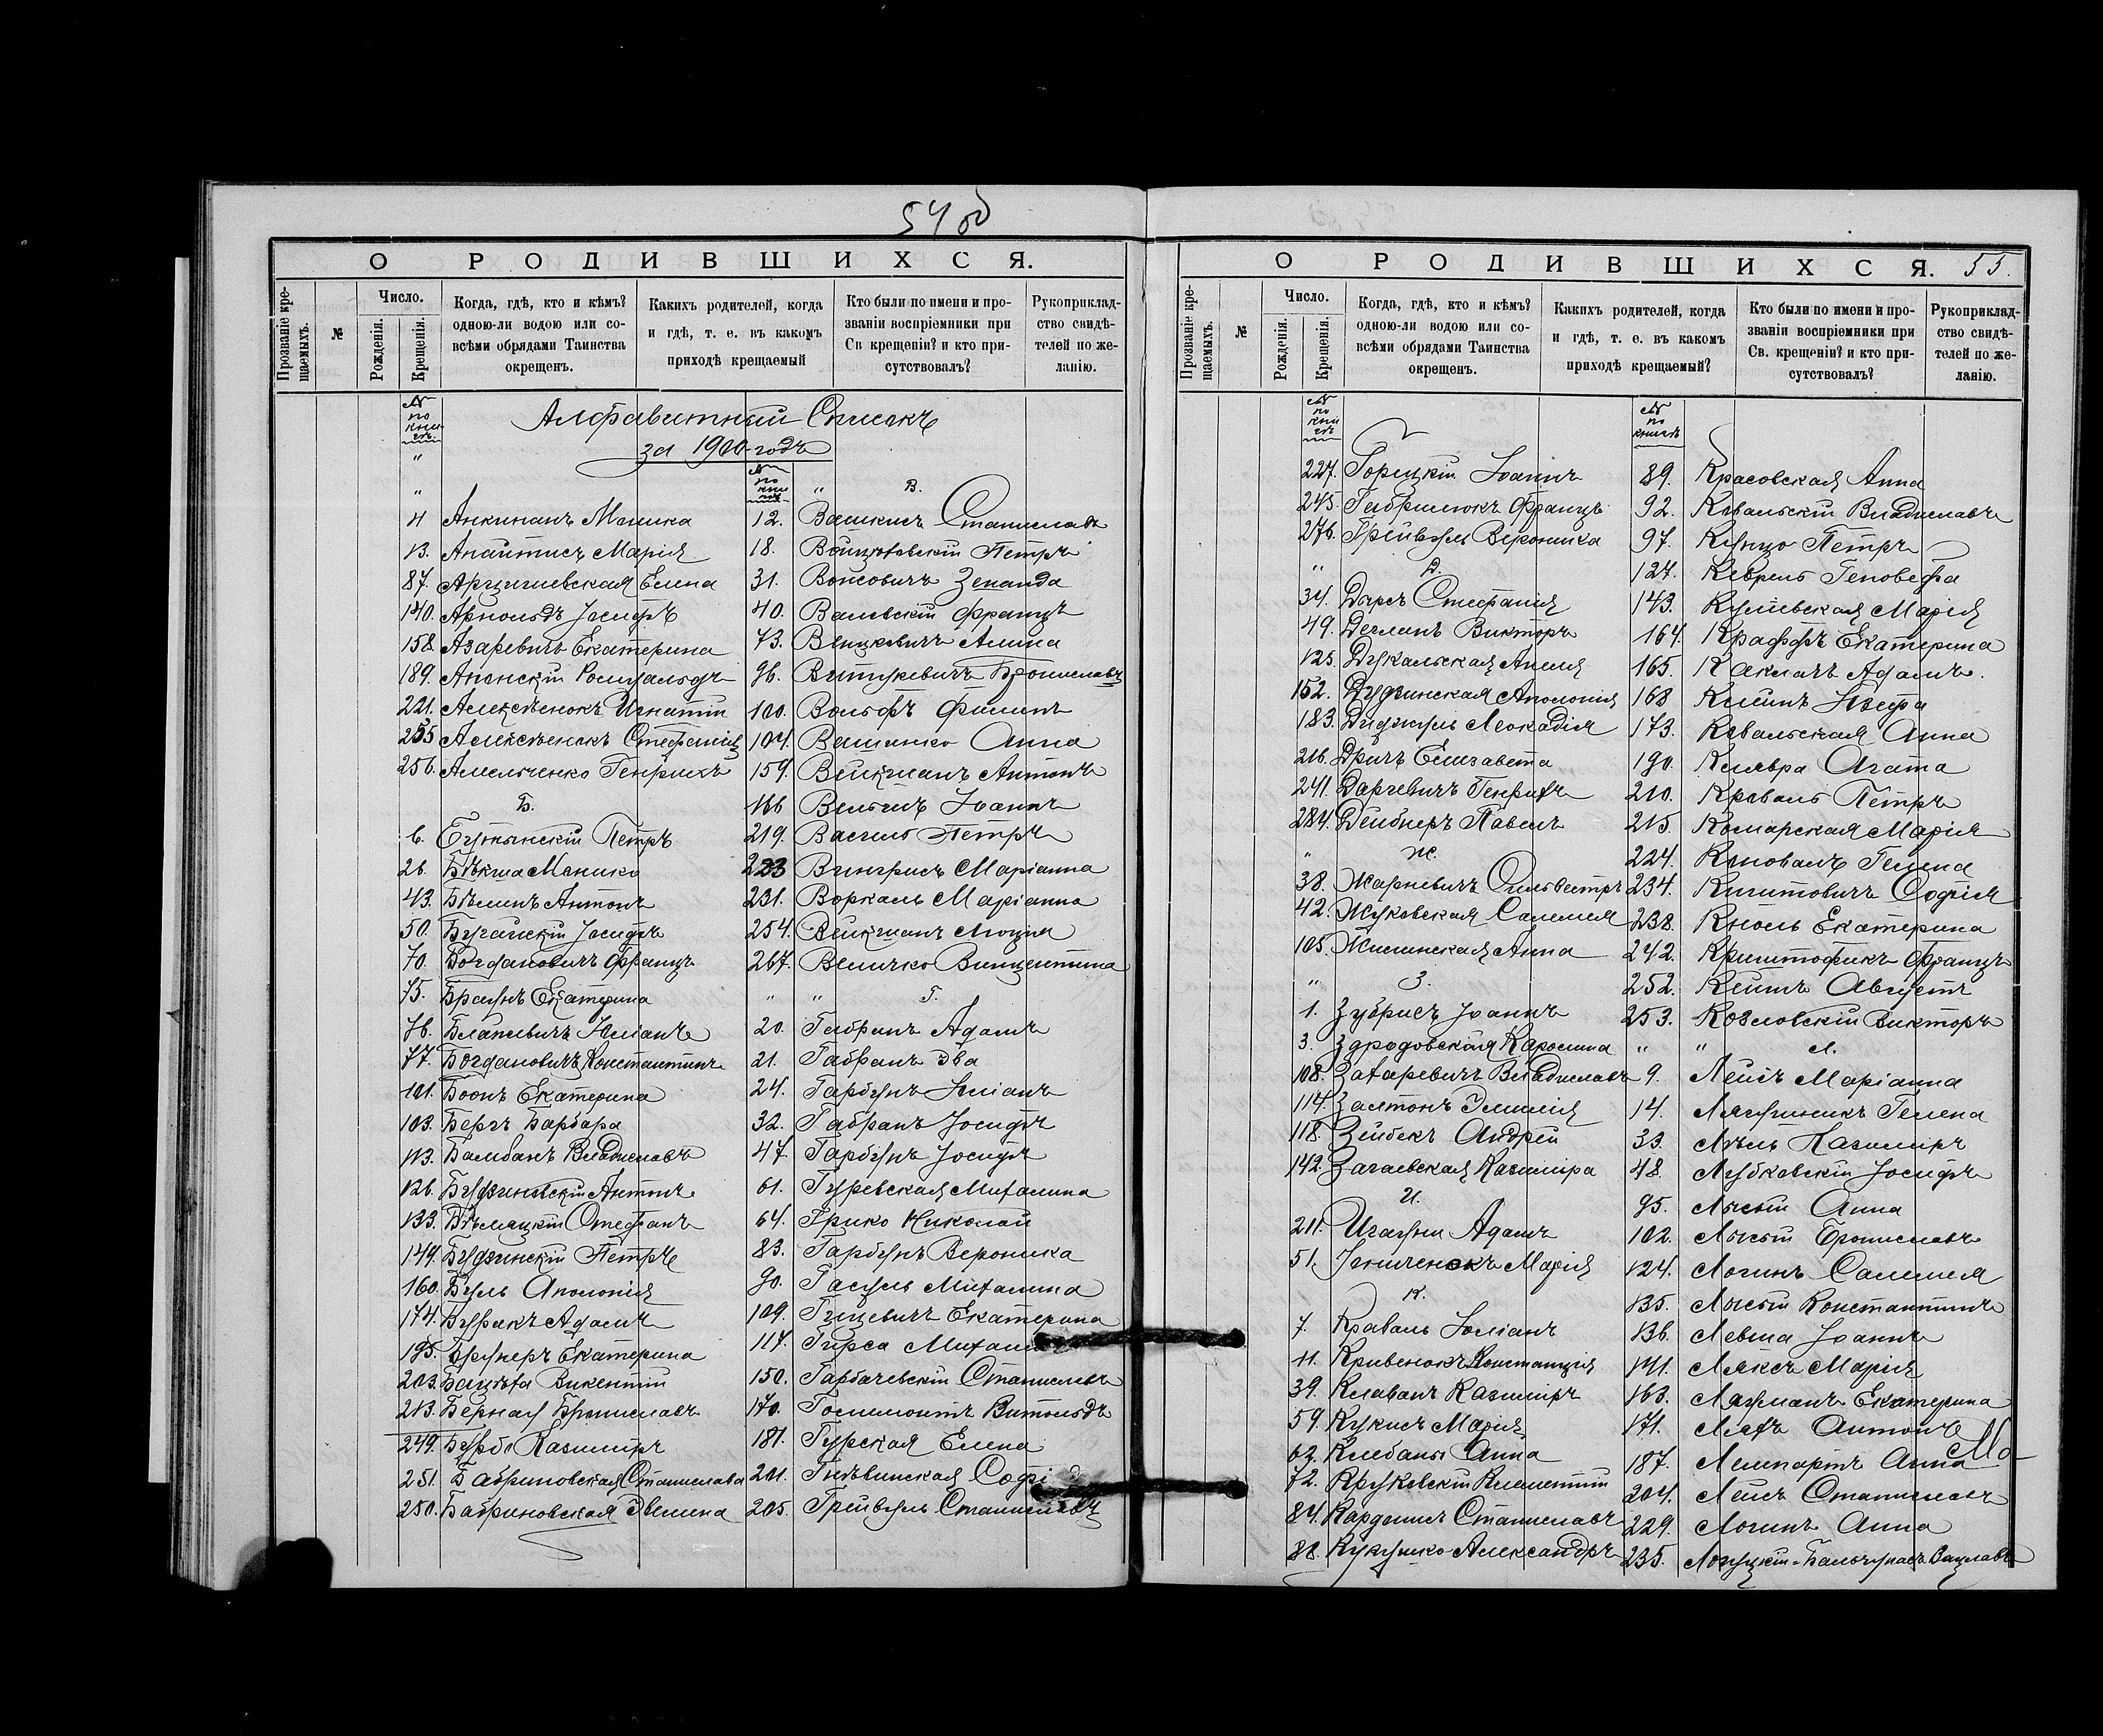 54 об
О РОДИВШИХСЯ.
Прозваніе крещаемыхъ.
№
Число.
Рожденія.
Крещенія.
Когда, гдѣ, кто и кѣмъ?
одною-ли водою или со-
всѣми обрядами Таинства
окрещенъ.
Какихъ родителей, когда
и гдѣ, т. е. въ какомъ
приходѣ крещаемый
Кто были по имени и про-
званіи воспріемники при
Св крещеніи? и кто при-
сутствовалъ?
Рукоприклад-
ство свидѣ-
телей по же-
ланію.
№ по книгѣ
Алфавитный Списокъ
за 1900 годъ
4 Анкинанъ Моника
13. Апайтисъ Марія
87. Арцишевская Елена
140. Арнольдъ Іосифъ
158. Азаревичъ Екатерина
189. Ананскій Ромуальдъ
221. Алексѣенокъ Игнатій
255 Алексѣенокъ Стефанія
256. Амельченко Генрихъ
Б.
6. Бутынскій Петръ
26. Бѣкша Моника
43. Бѣлинъ Антонъ
50. Бугайскій Іосифъ
70. Богдановичъ Францъ
75. Браунъ Екатерина
76. Блажевичъ Юліанъ
77. Богдановичъ Константинъ
101. Боонъ Екатерина
103. Бергъ Барбара
113. Бамбанъ Владиславъ
126. Будзиновскій Антонъ
133. Бѣляцкій Стефанъ
149. Будзинскій Петръ
160. Буль Аполонія
174. Буракъ Адамъ
195. Брунеръ Екатерина
203. Бацѣха Викентій
213. Бернал Брониславъ
249. Бурбо Казиміръ
251. Бабриновская Станислава
250. Бабриновская Эвелина
№ по книгѣ
" В.
12. Вашкисъ Станиславъ
18. Войцѣховскій Петръ
31. Войсовичъ Зенаида
40. Валевскій Францъ
73. Венцковичъ Алина
96. Витукевичъ Брониславъ
100. Вольфъ Филипъ
104. Вашинко Анна
159. Вейкманъ Антонъ
166 Вельгинъ Іоаннъ
219. Василь Петръ
223 Вингрисъ Маріанна
231. Воркаль Маріанна
254. Вейкманъ Люція
267. Величко Винцентина
" " Г.
20. Габранъ Адамъ
21. Габранъ Эва
24. Гарбунъ Юліанъ
32. Габранъ Іосифъ
47. Гарбунъ Іосифъ
61. Гуревская Михалина
64. Грико Николай
83. Гарбунъ Вероника
90. Гасуль Михалина
109. Гуцевичъ Екатерина
117. Гирса Михали
150. Гарбачевскій Станиславъ
170. Госимонтъ Витольдъ
181. Гурская Елена
201. Гнѣвинская Софі
205. Грейвуль Станиславъ
О РОДИВШИХСЯ. 55.
Прозваніе крещаемыхъ.
№
Число.
Рожденія.
Крещенія.
Когда, гдѣ, кто и кѣмъ?
одною-ли водою или со-
всѣми обрядами Таинства
окрещенъ.
Какихъ родителей, когда
и гдѣ, т. е. въ какомъ
приходѣ крещаемый?
Кто были по имени и про-
званіи воспріемники при
Св. крещеніи? и кто при-
сутствовалъ?
Рукоприклад-
ство свидѣ-
телей по же-
ланію.
№ по книгѣ
227. Горецкій Іоаннъ
245. Габрилюкъ Францъ
276. Грейвуль Вероника
" Д.
34. Дырсъ Стефанія
49. Дегланъ Викторъ
125. Дукальская Амелія
152. Дудзинская Аполонія
183. Диджуль Леокадія
216. Дричъ Елизавета
241. Даргевичъ Генрихъ
284. Дейднеръ Павелъ
" Ж.
38. Жарневичъ Сильвестръ
42. Жуковская Саломея
105. Жилинская Анна
" З.
1. Зубрисъ Іоаннъ
3. Здродовская Каролина
108. Захаревичъ Владиславъ
114. Залтонъ Эмилія
118. Зейбекъ Андрей
142. Загаевская Казиміра
И.
211. Игауни Адамъ
51. Ігнитенокъ Марія
К.
7. Краваль Юліанъ
11. Кривенокъ Констанція
39. Клаванъ Казиміръ
59. Кукисъ Марія
62. Клебаны Анна
72. Круковскій Климентій
84. Кардошисъ Станиславъ
88. Кукушко Александръ
№ по книгѣ
89. Красовская Анна
92. Ковальскій Владиславъ
97. Кунцо Петръ
127. Кеврель Геновефа
143. Кулевская Марія
164. Краффъ Екатерина
165. Какличъ Адамъ.
168 Клейнъ Юзефа
173. Ковальская Анна
190. Клявра Агата
210. Краваль Петръ
215. Комарская Марія
224. Коновалъ Гелена
234. Кигитовичъ Софія
238. Кноль Екатерина
242. Криштофикъ Францъ
252. Клейнъ Августъ
253. Козловскій Викторъ
" " Л.
9. Лейсъ Маріанна
14. Лаугиникъ Гелена
33. Лѣль Казиміръ
48. Лубковскій Іосифъ
95. Лысый Анна
102. Лысый Брониславъ
124. Логинъ Саломея
135. Лысый Константинъ
136. Левша Іоаннъ
141. Ляксъ Марія
163. Лауманъ Екатерина
171. Ляхъ Антонъ
187. Лемпартъ Анна
204. Лейсъ Станиславъ
229. Логинъ Анна
235. Логуцкій-Бальчунасъ Вацлавъ
Ма